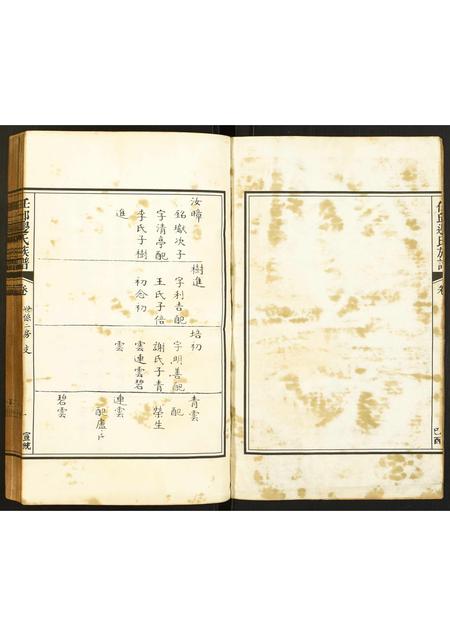 汝暲
銘嶽次子
字清亭配
李氏子樹
進
樹進
字利吉配
王氏子倍
初念初
培初
字明善配
謝氏子青
雲連雲碧
雲
青雲
配
榮生
連雲
配盧氏
碧雲
任邱邊氏族譜
卷
世係二房支
宣統
任邱邊氏族譜
卷
己酉